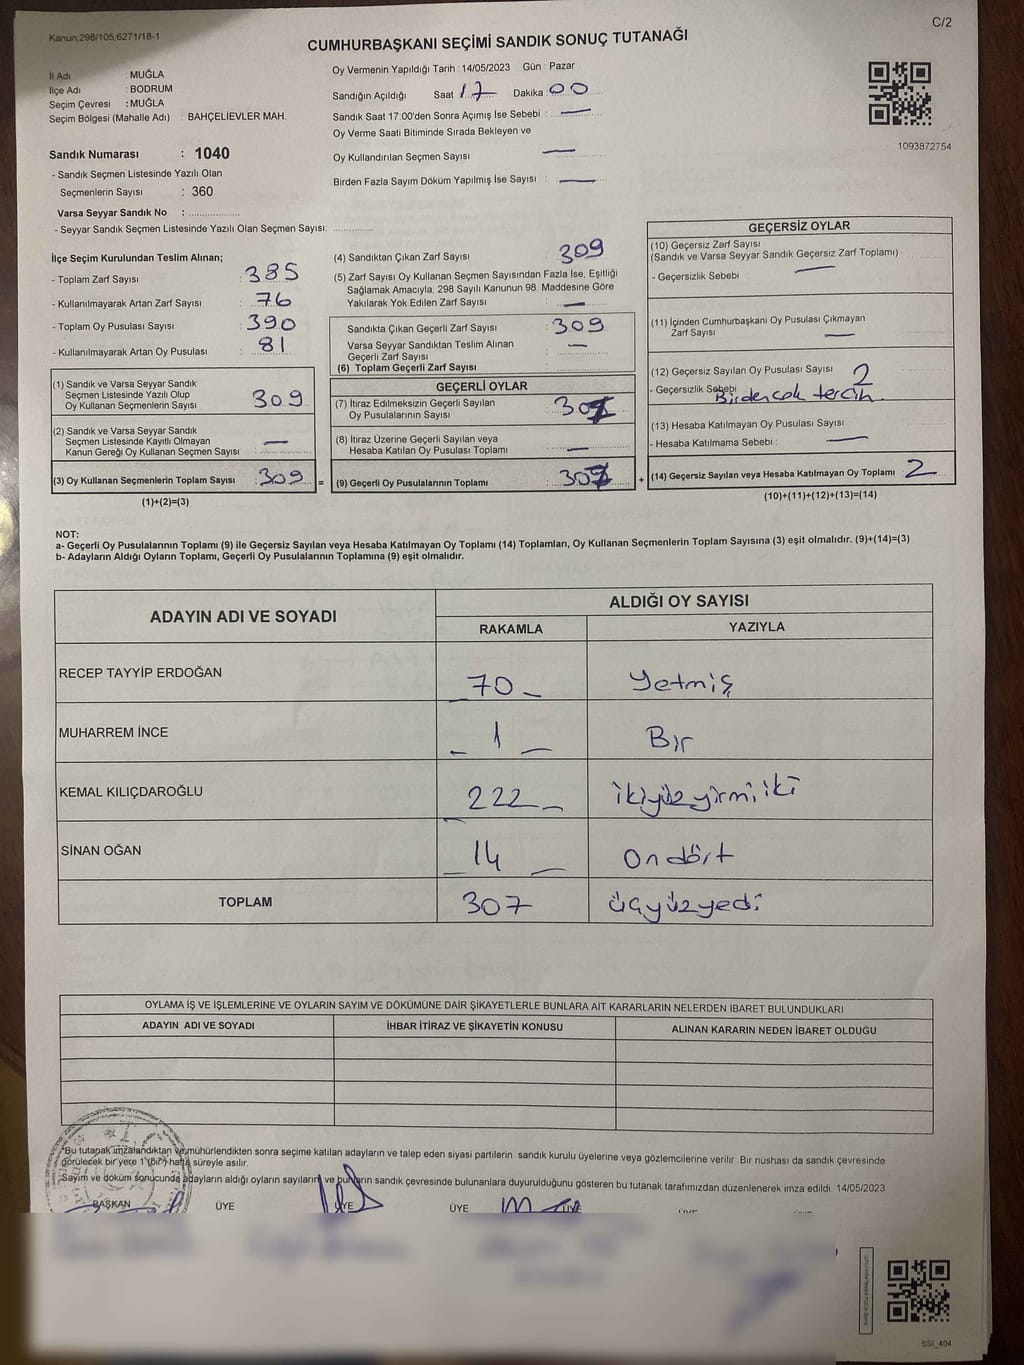 Kanun;298/105;6271/18-1
C/2
CUMHURBAŞKANI SEÇİMİ SANDIK SONUÇ TUTANAĞI
İl Adı : MUĞLA
İlçe Adı : BODRUM
Seçim Çevresi : MUĞLA
Seçim Bölgesi (Mahalle Adı) : BAHÇELİEVLER MAH.
Sandık Numarası : 1040
- Sandık Seçmen Listesinde Yazılı Olan
Seçmenlerin Sayısı : 360
Varsa Seyyar Sandık No : ..................
- Seyyar Sandık Seçmen Listesinde Yazılı Olan Seçmen Sayısı: ..............
Oy Vermenin Yapıldığı Tarih : 14/05/2023 Gün : Pazar
Sandığın Açıldığı Saat 17 Dakika : 00
Sandık Saat 17:00'den Sonra Açımış İse Sebebi : —
Oy Verme Saati Bitiminde Sırada Bekleyen ve
Oy Kullandırılan Seçmen Sayısı —
Birden Fazla Sayım Döküm Yapılmış İse Sayısı : —
1093872754
İlçe Seçim Kurulundan Teslim Alınan;
- Toplam Zarf Sayısı : 385
- Kullanılmayarak Artan Zarf Sayısı : 76
- Toplam Oy Pusulası Sayısı : 390
- Kullanılmayarak Artan Oy Pusulası : 81
(1) Sandık ve Varsa Seyyar Sandık
Seçmen Listesinde Yazılı Olup
Oy Kullanan Seçmenlerin Sayısı : 309
(2) Sandık ve Varsa Seyyar Sandık
Seçmen Listesinde Kayıtlı Olmayan
Kanun Gereği Oy Kullanan Seçmen Sayısı : —
(3) Oy Kullanan Seçmenlerin Toplam Sayısı : 309 =
(1)+(2)=(3)
(4) Sandıktan Çıkan Zarf Sayısı : 309
(5) Zarf Sayısı Oy Kullanan Seçmen Sayısından Fazla İse, Eşitliği
Sağlamak Amacıyla, 298 Sayılı Kanunun 98. Maddesine Göre
Yakılarak Yok Edilen Zarf Sayısı : —
Sandıkta Çıkan Geçerli Zarf Sayısı : 309
Varsa Seyyar Sandıktan Teslim Alınan —
Geçerli Zarf Sayısı
(6) Toplam Geçerli Zarf Sayısı :
GEÇERLİ OYLAR
(7) İtiraz Edilmeksizin Geçerli Sayılan
Oy Pusulalarının Sayısı : 307
(8) İtiraz Üzerine Geçerli Sayılan veya
Hesaba Katılan Oy Pusulası Toplamı : —
(9) Geçerli Oy Pusulalarının Toplamı : 307 +
GEÇERSİZ OYLAR
(10) Geçersiz Zarf Sayısı
(Sandık ve Varsa Seyyar Sandık Geçersiz Zarf Toplamı) :
- Geçersizlik Sebebi : —
(11) İçinden Cumhurbaşkanı Oy Pusulası Çıkmayan
Zarf Sayısı : —
(12) Geçersiz Sayılan Oy Pusulası Sayısı : 2
- Geçersizlik Sebebi Birden çok tercih.
(13) Hesaba Katılmayan Oy Pusulası Sayısı :
- Hesaba Katılmama Sebebi : —
(14) Geçersiz Sayılan veya Hesaba Katılmayan Oy Toplamı : 2
(10)+(11)+(12)+(13)=(14)
NOT:
a- Geçerli Oy Pusulalarının Toplamı (9) ile Geçersiz Sayılan veya Hesaba Katılmayan Oy Toplamı (14) Toplamları, Oy Kullanan Seçmenlerin Toplam Sayısına (3) eşit olmalıdır. (9)+(14)=(3)
b- Adayların Aldığı Oyların Toplamı, Geçerli Oy Pusulalarının Toplamına (9) eşit olmalıdır.
ADAYIN ADI VE SOYADI
ALDIĞI OY SAYISI
RAKAMLA YAZIYLA
RECEP TAYYİP ERDOĞAN 70 Yetmiş
MUHARREM İNCE 1 Bir
KEMAL KILIÇDAROĞLU 222 ikiyüzyirmiiki
SİNAN OĞAN 14 Ondört
TOPLAM 307 üçyüzyedi
OYLAMA İŞ VE İŞLEMLERİNE VE OYLARIN SAYIM VE DÖKÜMÜNE DAİR ŞİKAYETLERLE BUNLARA AİT KARARLARIN NELERDEN İBARET BULUNDUKLARI
ADAYIN ADI VE SOYADI İHBAR İTİRAZ VE ŞİKAYETİN KONUSU ALINAN KARARIN NEDEN İBARET OLDUĞU
*Bu tutanak imzalandıktan ve mühürlendikten sonra seçime katılan adayların ve talep eden siyasi partilerin sandık kurulu üyelerine veya gözlemcilerine verilir. Bir nüshası da sandık çevresinde
görülecek bir yere 1 (bir) hafta süreyle asılır.
Sayım ve döküm sonucunda adayların aldığı oyların sayılarını ve bunların sandık çevresinde bulunanlara duyurulduğunu gösteren bu tutanak tarafımızdan düzenlenerek imza edildi. 14/05/2023
BAŞKAN ÜYE ÜYE ÜYE ÜYE
SSI_404